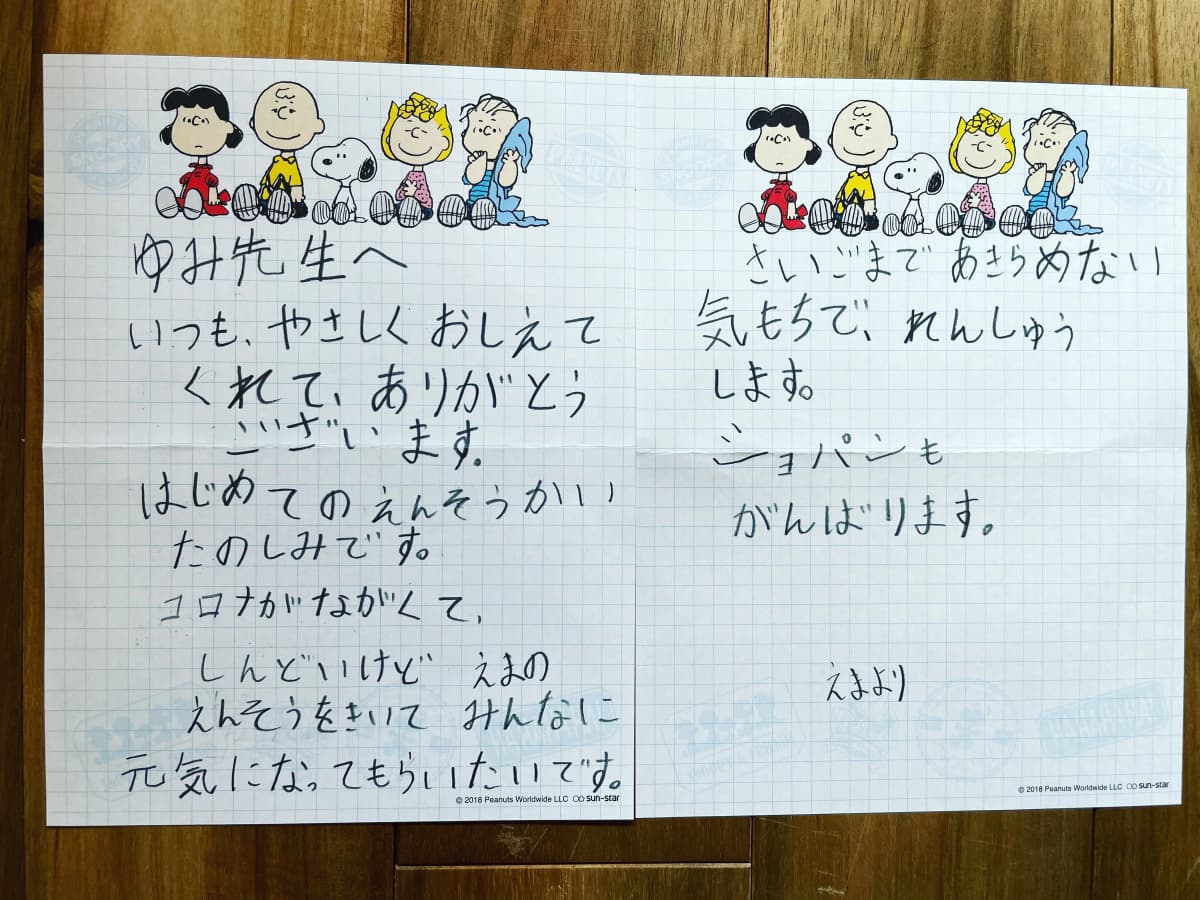 ゆみ先生へ
いつも、やさしくおしえて
くれて、ありがとう
ございます。
はじめてのえんそうかい
たのしみです。
コロナがながくて、
しんどいけど えまの
えんそうをきいて みんなに
元気になってもらいたいです。
© 2018 Peanuts Worldwide LLC sun-star
さいごまで あきらめない
気もちで、れんしゅう
します。
ショパンも
がんばります。
えまより
© 2018 Peanuts Worldwide LLC sun-star